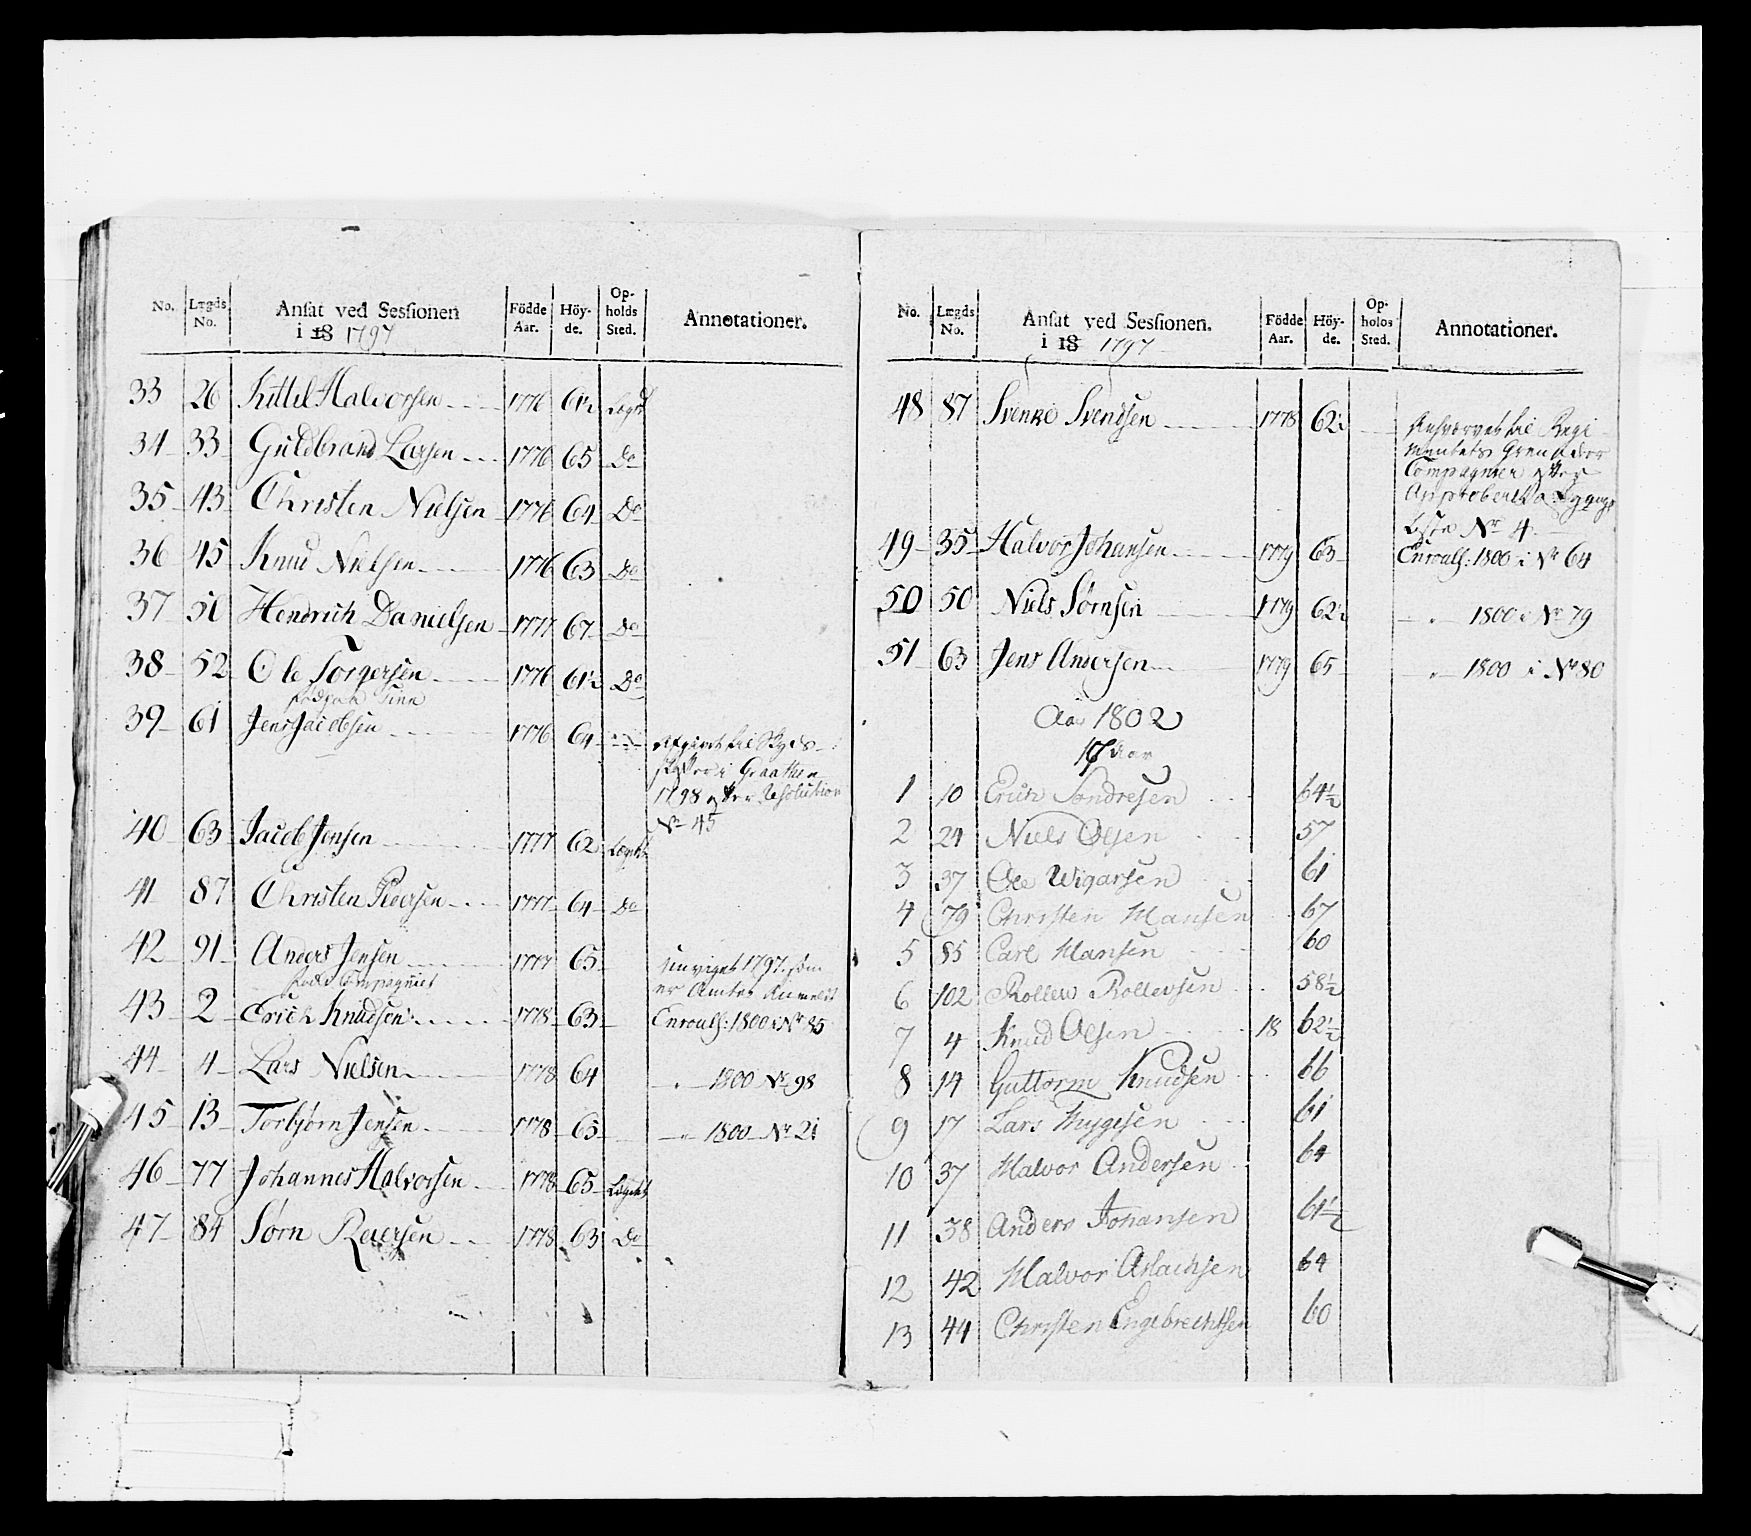 No. Lægds No. Ansat ved Sessionen i 18 1797 Födde Aar. Höyde. Opholds Sted. Annotationer.
33 26 Kittel Halvorsen 1776 61½ Lægdt
34 33 Guldbrand Larsen 1776 65 Do
35 43 Christen Nielsen 1776 64 Do
36 45 Knud Nielsen 1776 63 Do
37 51 Hendrich Danielsen 1777 67 Do
38 52 Ole Torgersen 1776 61½ Do
39 61 Jens Jacobsen 1776 64
1798 efter Resolution
No 45
40 63 Jacob Jensen 1777 62 Lægdet
41 87 Christen Pedersen 1777 64 Do
42 91 Anders Jensen 1777 65
43 2 Erich Knudsen 1778 63 Enroull: 1800 i No 85
44 4 Lars Nielsen 1778 64 " 1800 No 98
45 13 Torbjørn Jensen 1778 65 " 1800 No 21
46 77 Johannes Halvorsen 1778 65 Lægdet
47 84 Sørn Reiersen 1778 63 Do
No. Lægds No. Ansat ved Sessionen. i 18 1797 Födde Aar. Höyde. Opholds Sted. Annotationer.
48 87 Svenke Svendsen 1778 62½
til Regi
mentets Grenader
Compagnier efter
Liste Nr 4
49 35 Halvor Johansen 1779 63 Enroull: 1800 i Nr 64
50 50 Niels Sørnsen 1779 62½ " 1800 i Nr 79
51 63 Jens Andersen 1779 65 " 1800 i Nr 80
Aar 1802
17 Aar
1 10 Erich Sondresen 64½
2 24 Niels Olsen 57
3 37 Ole Wigarsen 61
4 79 Christen Hansen 67
5 85 Carl Hansen 60
6 102 Rollew Rollevsen 58½
7 4 Knud Olsen 18 62½
8 14 Guttorm Knudsen 66
9 17 Lars Thygesen 61
10 37 Halvor Andersen 64
11 38 Anders Johansen 61½
12 42 Halvor Aslachsen 64
13 44 Christen Engebrechtsen 60